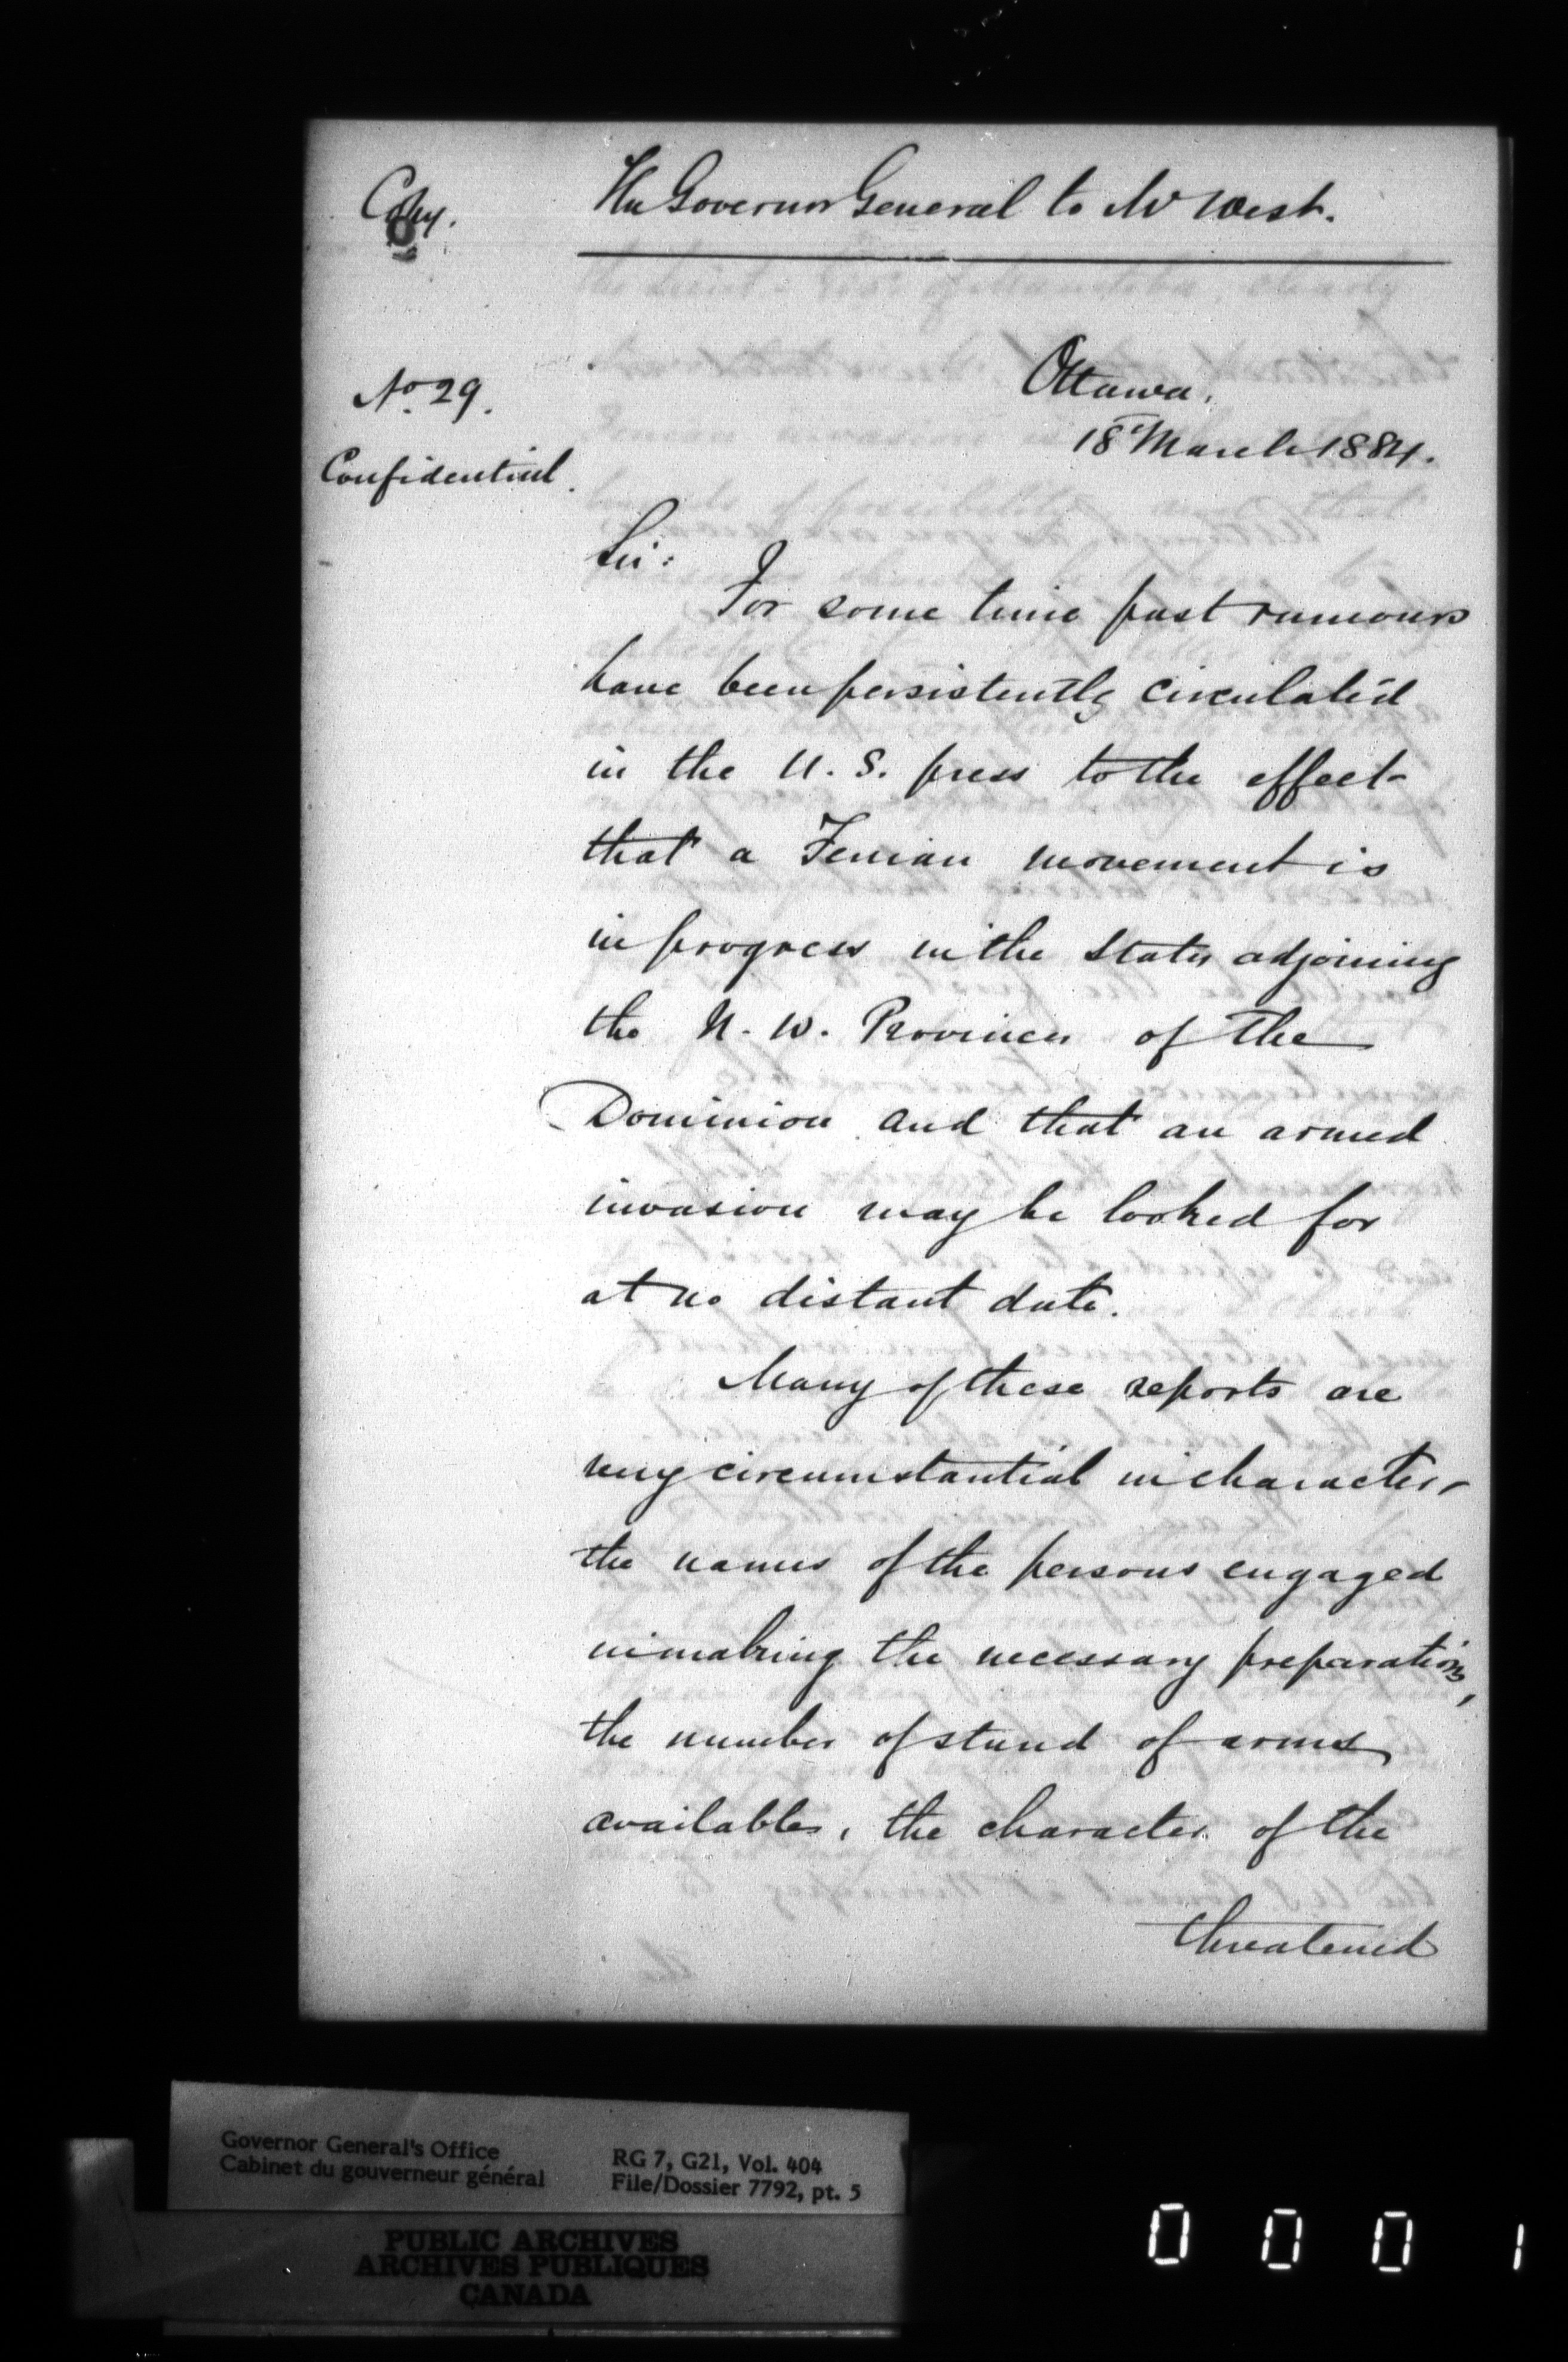 Copy.
The Governor General to Mr West.
No. 29.
Confidential.
Ottawa,
18 March 1884.
Sir:
For some time past rumours
have been persistently circulated
in the U.S. press to the effect
that a Fenian movement is
in progress in the States adjoining
the N.W. Provinces of the
Dominion and that an armed
invasion may be looked for
at no distant date.
Many of these reports are
very circumstantial in character,
the names of the persons engaged
in making the necessary preparations,
the number of stand of arms
available, the character of the
threatened
Governor General's Office
Cabinet du gouverneur général
RG 7, G21, Vol. 404
File/Dossier 7792, pt. 5
PUBLIC ARCHIVES
ARCHIVES PUBLIQUES
CANADA
0001